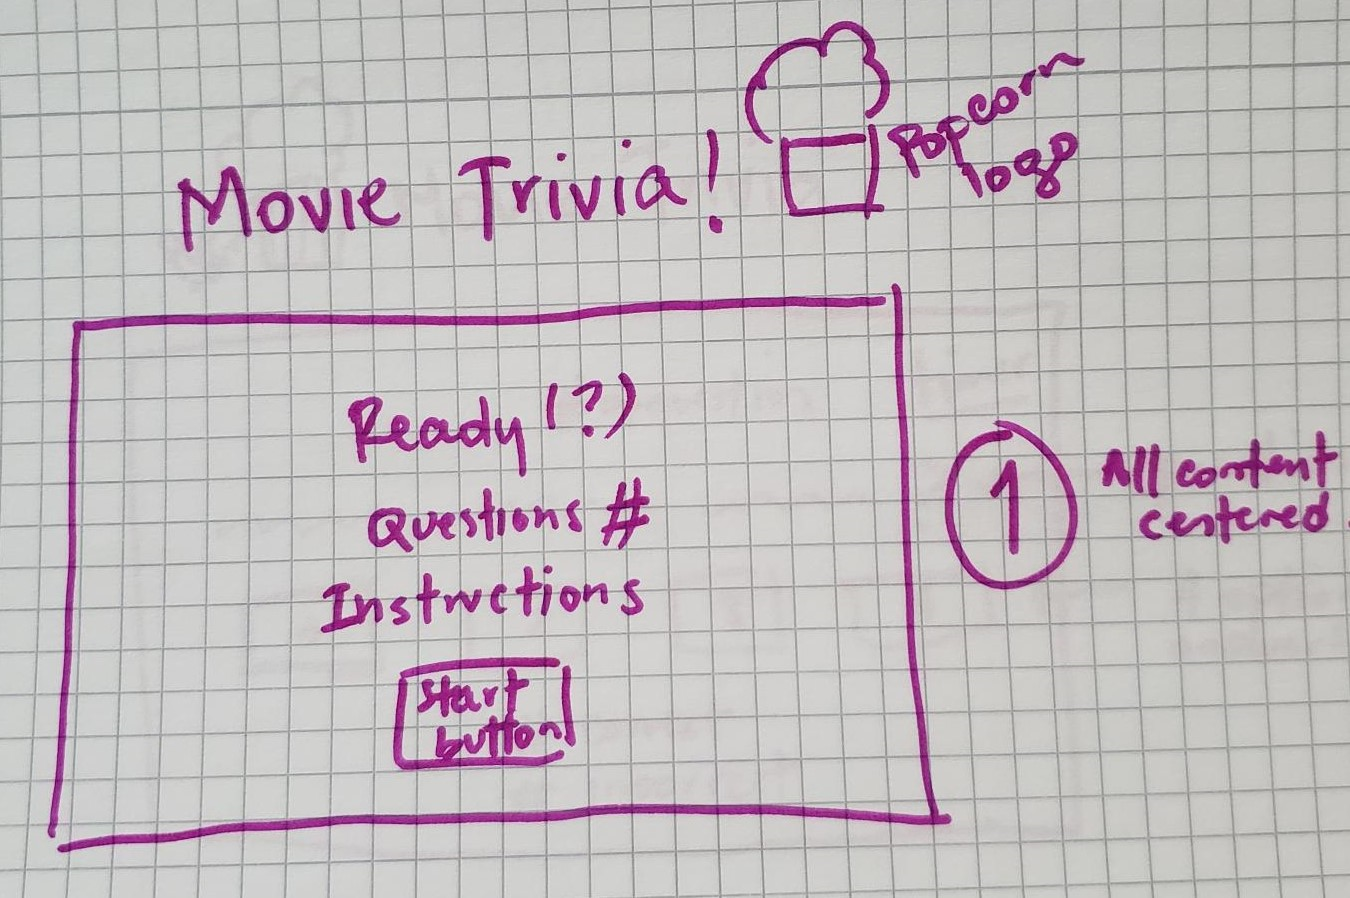 Movie Trivia!
Popcorn
logo
Ready (?)
Questions #
Instructions
Start
button
1
All content
centered.